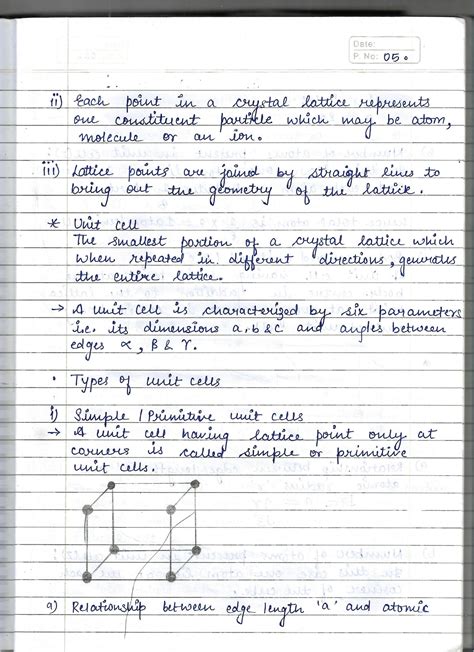 Date:
P. No: 05.
ii) Each point in a crystal lattice represents
one constituent particle which may be atom,
molecule or an ion.
iii) Lattice points are joined by straight lines to
bring out the geometry of the lattice.
* Unit cell
The smallest portion of a crystal lattice which
when repeated in different directions, generates
the entire lattice.
→ A unit cell is characterized by six parameters
i.e. its dimensions a, b & c and angles between
edges α, β & γ.
• Types of unit cells
i) Simple / Primitive unit cells
→ A unit cell having lattice point only at
corners is called simple or primitive
unit cells.
a) Relationship between edge length 'a' and atomic